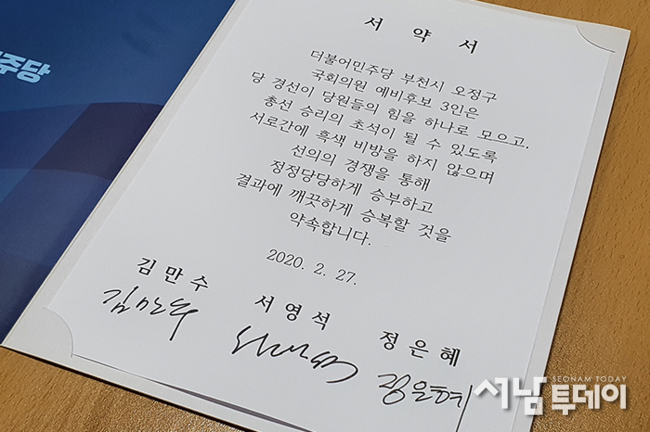 주당
서 약 서
더불어민주당 부천시 오정구
국회의원 예비후보 3인은
당 경선이 당원들의 힘을 하나로 모으고,
총선 승리의 초석이 될 수 있도록
서로간에 흑색 비방을 하지 않으며
선의의 경쟁을 통해
정정당당하게 승부하고
결과에 깨끗하게 승복할 것을
약속합니다.
2020. 2. 27.
김만수 서영석 정은혜
김만수 서영석 정은혜
SEONAM TODAY
서남투데이